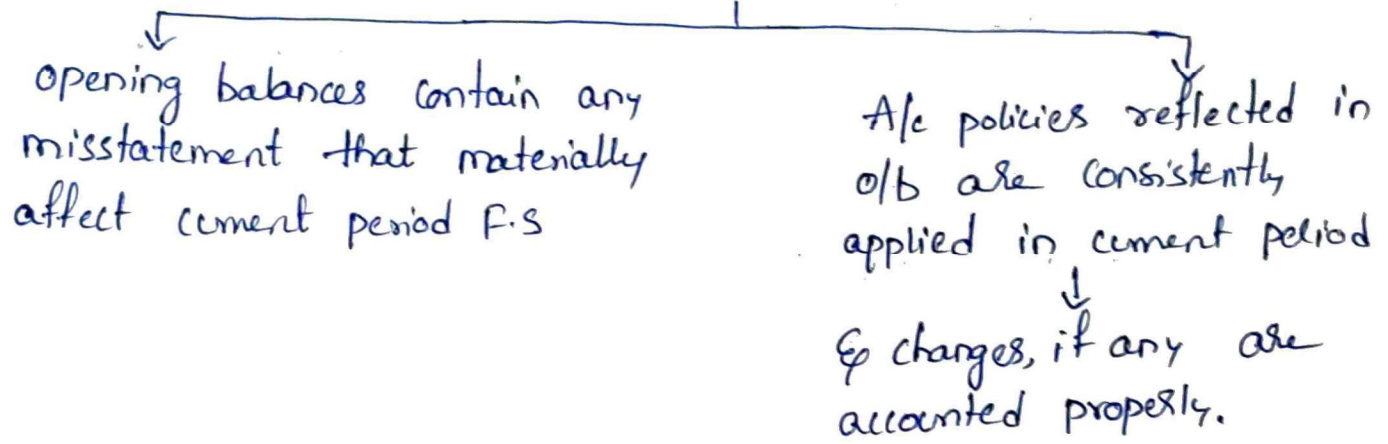 opening balances contain any
misstatement that materially
affect current period F.S
A/c policies reflected in
o/b are consistently
applied in current period
& changes, if any are
accounted properly.